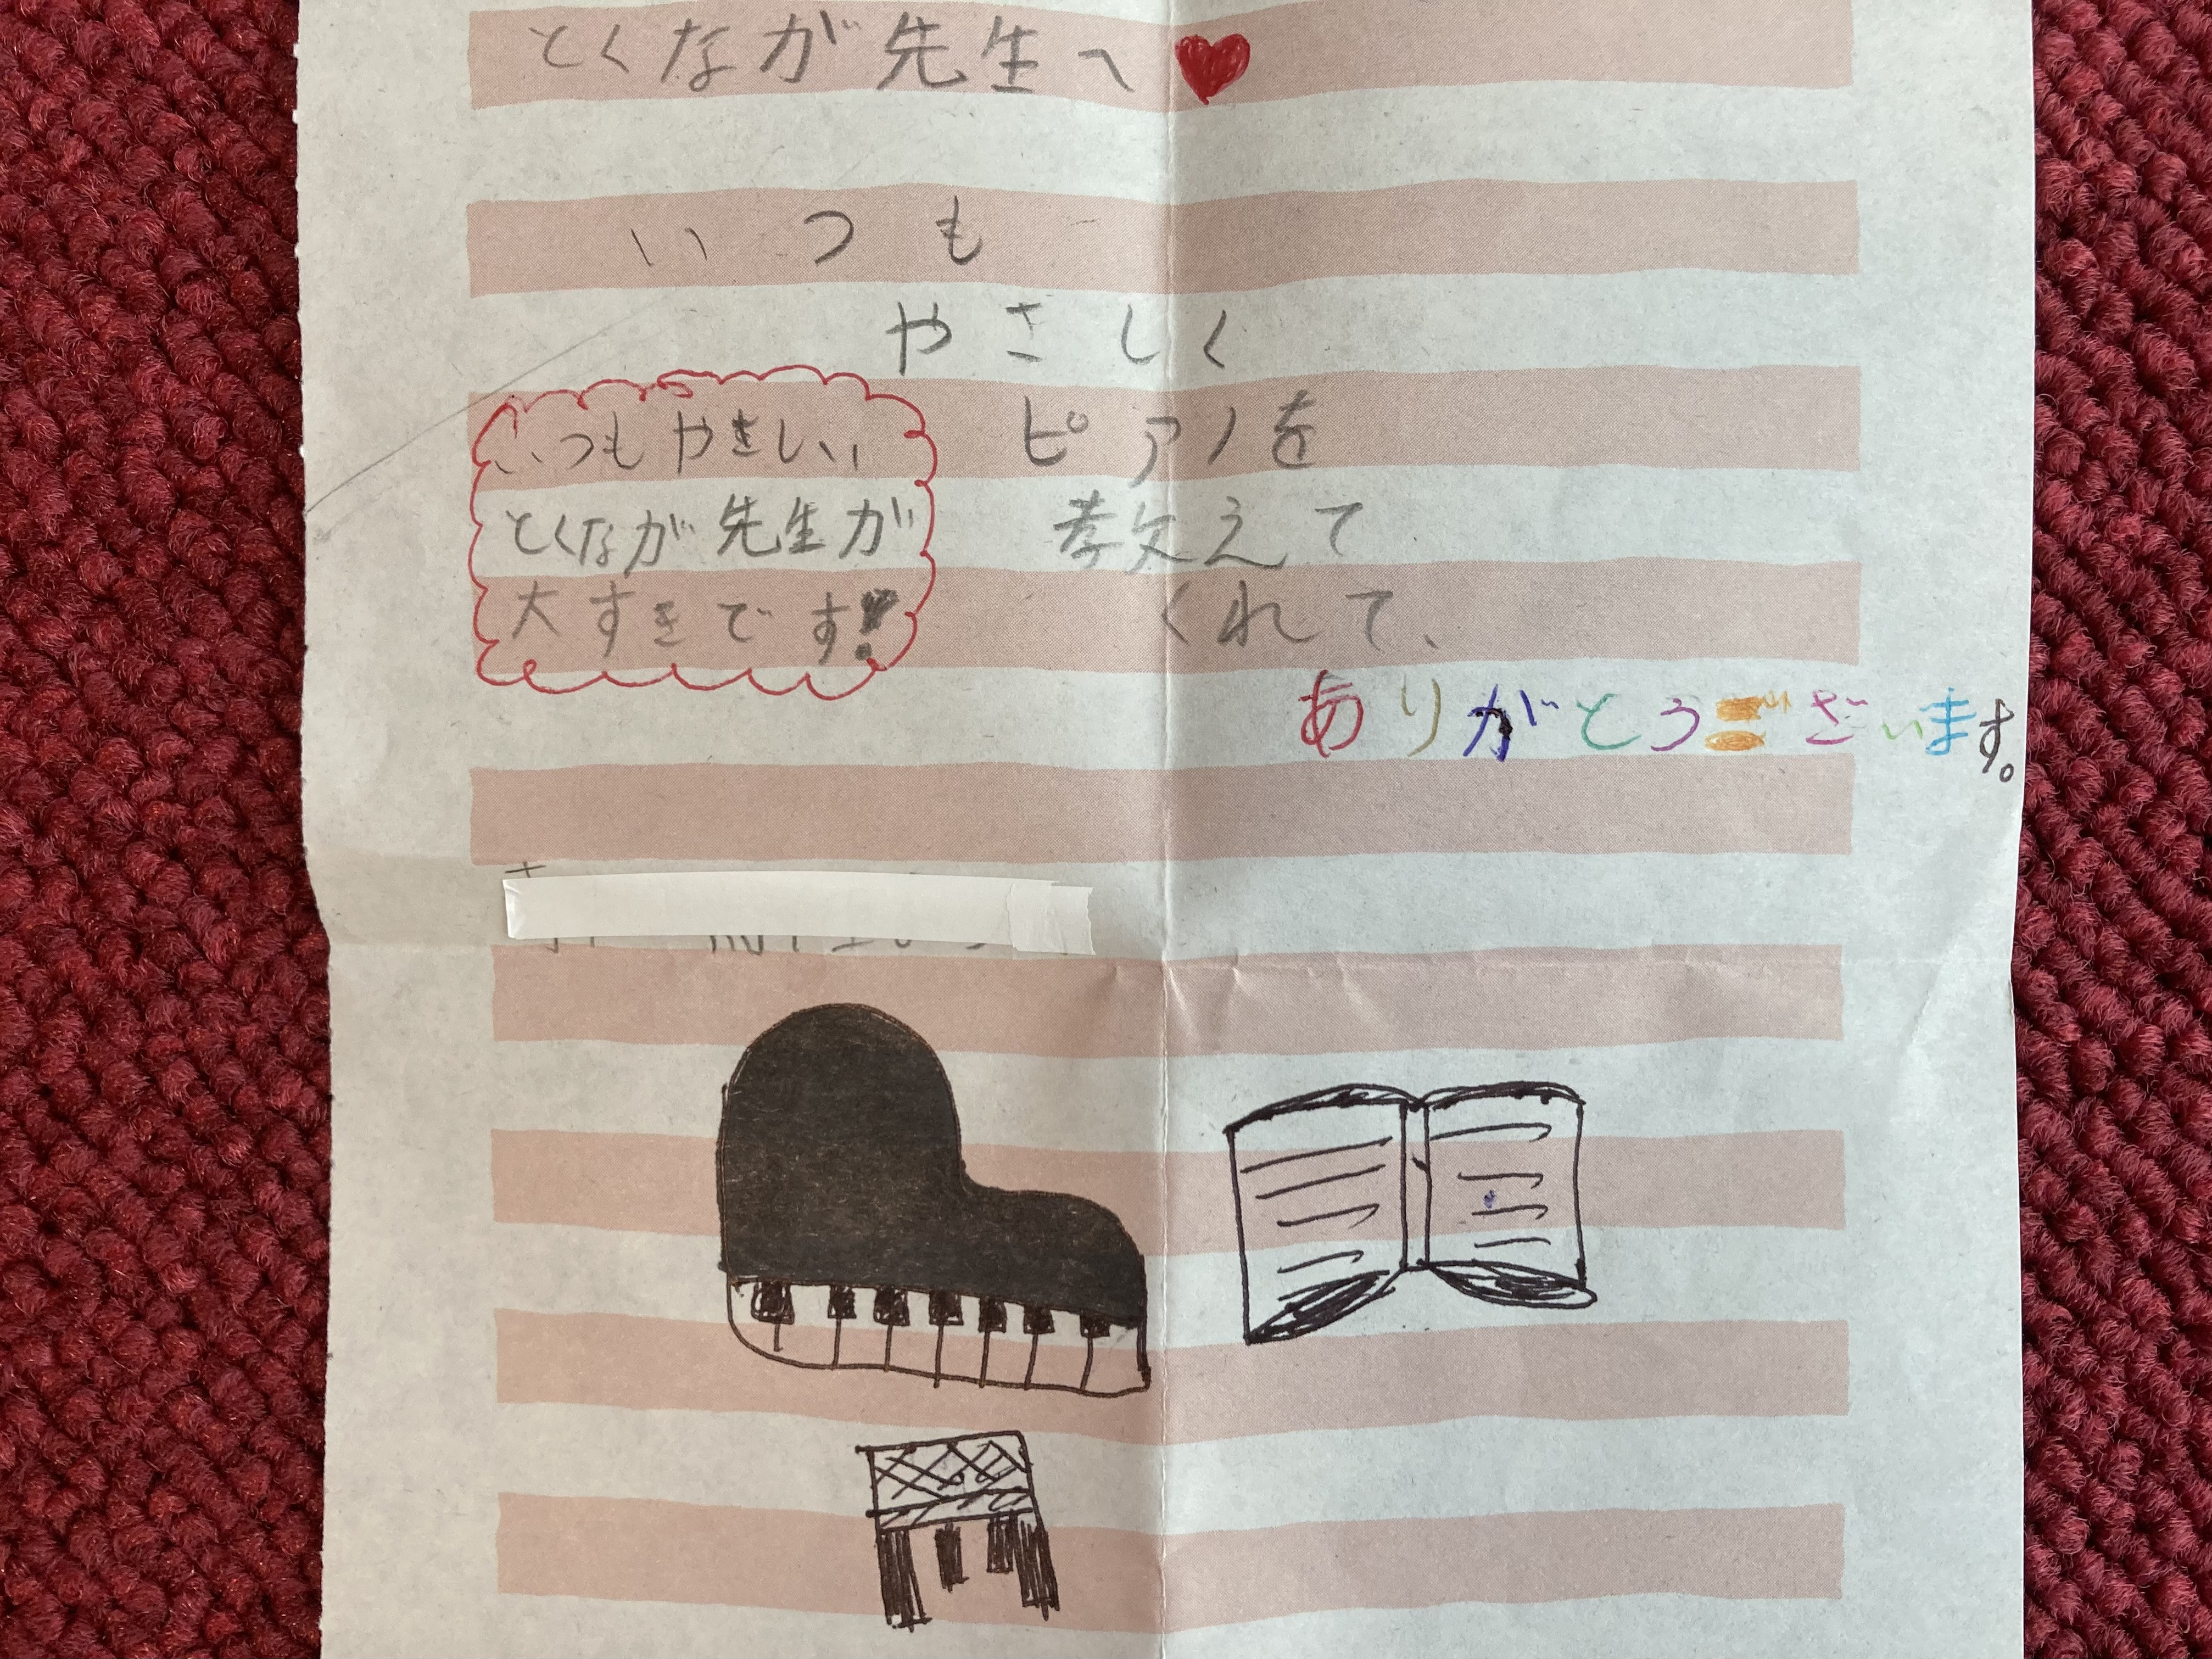 とくなが先生へ
いつも
やさしく
ピアノを
教えて
くれて、
ありがとうございます。
いつもやさしい
とくなが先生が
大すきです!